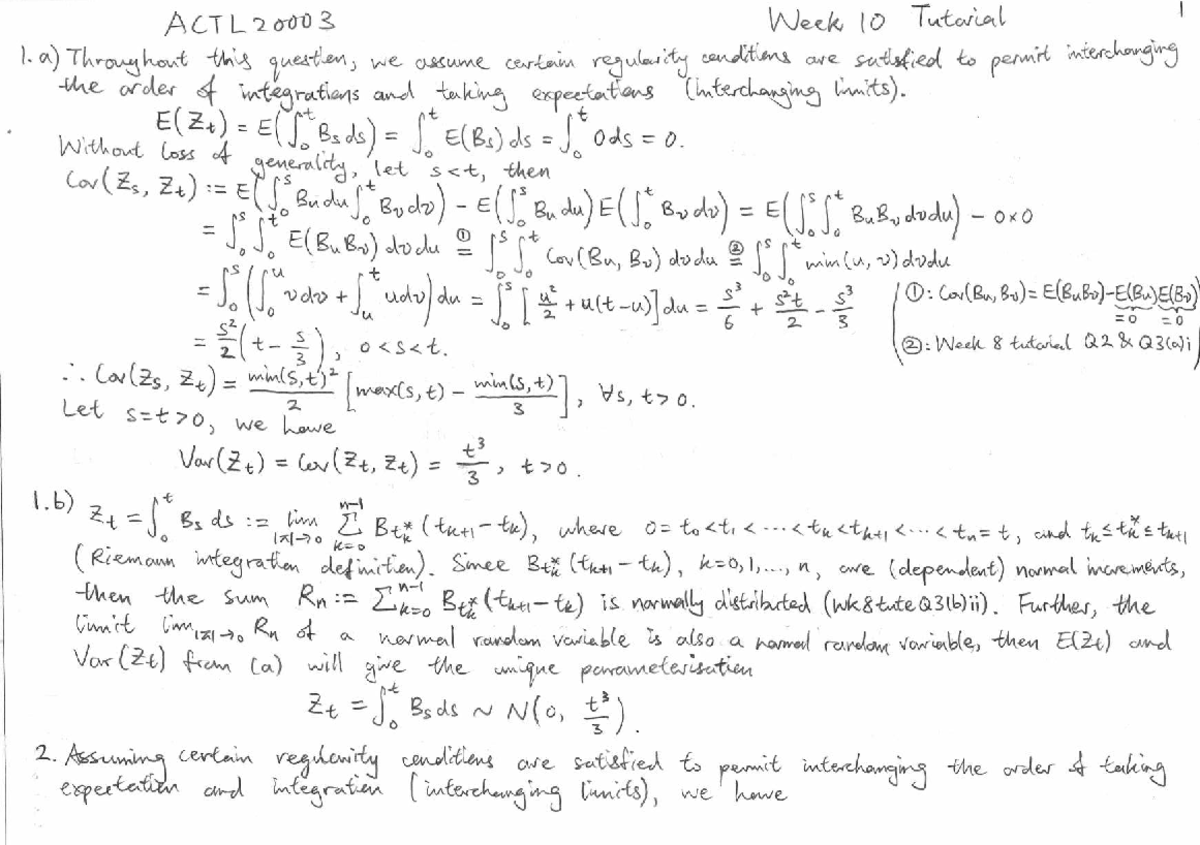 ACTL20003 Week 10 Tutorial 1
1. a) Throughout this question, we assume certain regularity conditions are satisfied to permit interchanging
the order of integrations and taking expectations (interchanging limits).
E(Z_t) = E(∫_0^t B_s ds) = ∫_0^t E(B_s) ds = ∫_0^t 0 ds = 0.
Without loss of generality, let s<t, then
Cov(Z_s, Z_t) := E(∫_0^s B_u du ∫_0^t B_v dv) − E(∫_0^s B_u du) E(∫_0^t B_v dv) = E(∫_0^s ∫_0^t B_u B_v dv du) − 0×0
= ∫_0^s ∫_0^t E(B_u B_v) dv du ①= ∫_0^s ∫_0^t Cov(B_u, B_v) dv du ②= ∫_0^s ∫_0^t min(u, v) dv du
= ∫_0^s (∫_0^u v dv + ∫_u^t u dv) du = ∫_0^s [u²/2 + u(t−u)] du = s³/6 + s²t/2 − s³/3
①: Cov(B_u, B_v) = E(B_u B_v) − E(B_u) E(B_v)
=0 =0
②: Week 8 tutorial Q2 & Q3(a)i
= s²/2 (t − s/3), 0<s<t.
∴ Cov(Z_s, Z_t) = min(s,t)²/2 [max(s,t) − min(s,t)/3], ∀s, t>0.
Let s=t>0, we have
Var(Z_t) = Cov(Z_t, Z_t) = t³/3, t>0.
1.b) Z_t = ∫_0^t B_s ds := lim_{|π|→0} Σ_{k=0}^{n−1} B_{t_k^*} (t_{k+1} − t_k), where 0 = t_0 < t_1 < ⋯ < t_k < t_{k+1} < ⋯ < t_n = t, and t_k ≤ t_k^* ≤ t_{k+1}
(Riemann integration definition). Since B_{t_k^*} (t_{k+1} − t_k), k=0,1,...,n, are (dependent) normal increments,
then the sum R_n := Σ_{k=0}^{n−1} B_{t_k^*} (t_{k+1} − t_k) is normally distributed (wk8tute Q3(b)ii). Further, the
limit lim_{|π|→0} R_n of a normal random variable is also a normal random variable, then E(Z_t) and
Var(Z_t) from (a) will give the unique parameterisation
Z_t = ∫_0^t B_s ds ~ N(0, t³/3).
2. Assuming certain regularity conditions are satisfied to permit interchanging the order of taking
expectation and integration (interchanging limits), we have